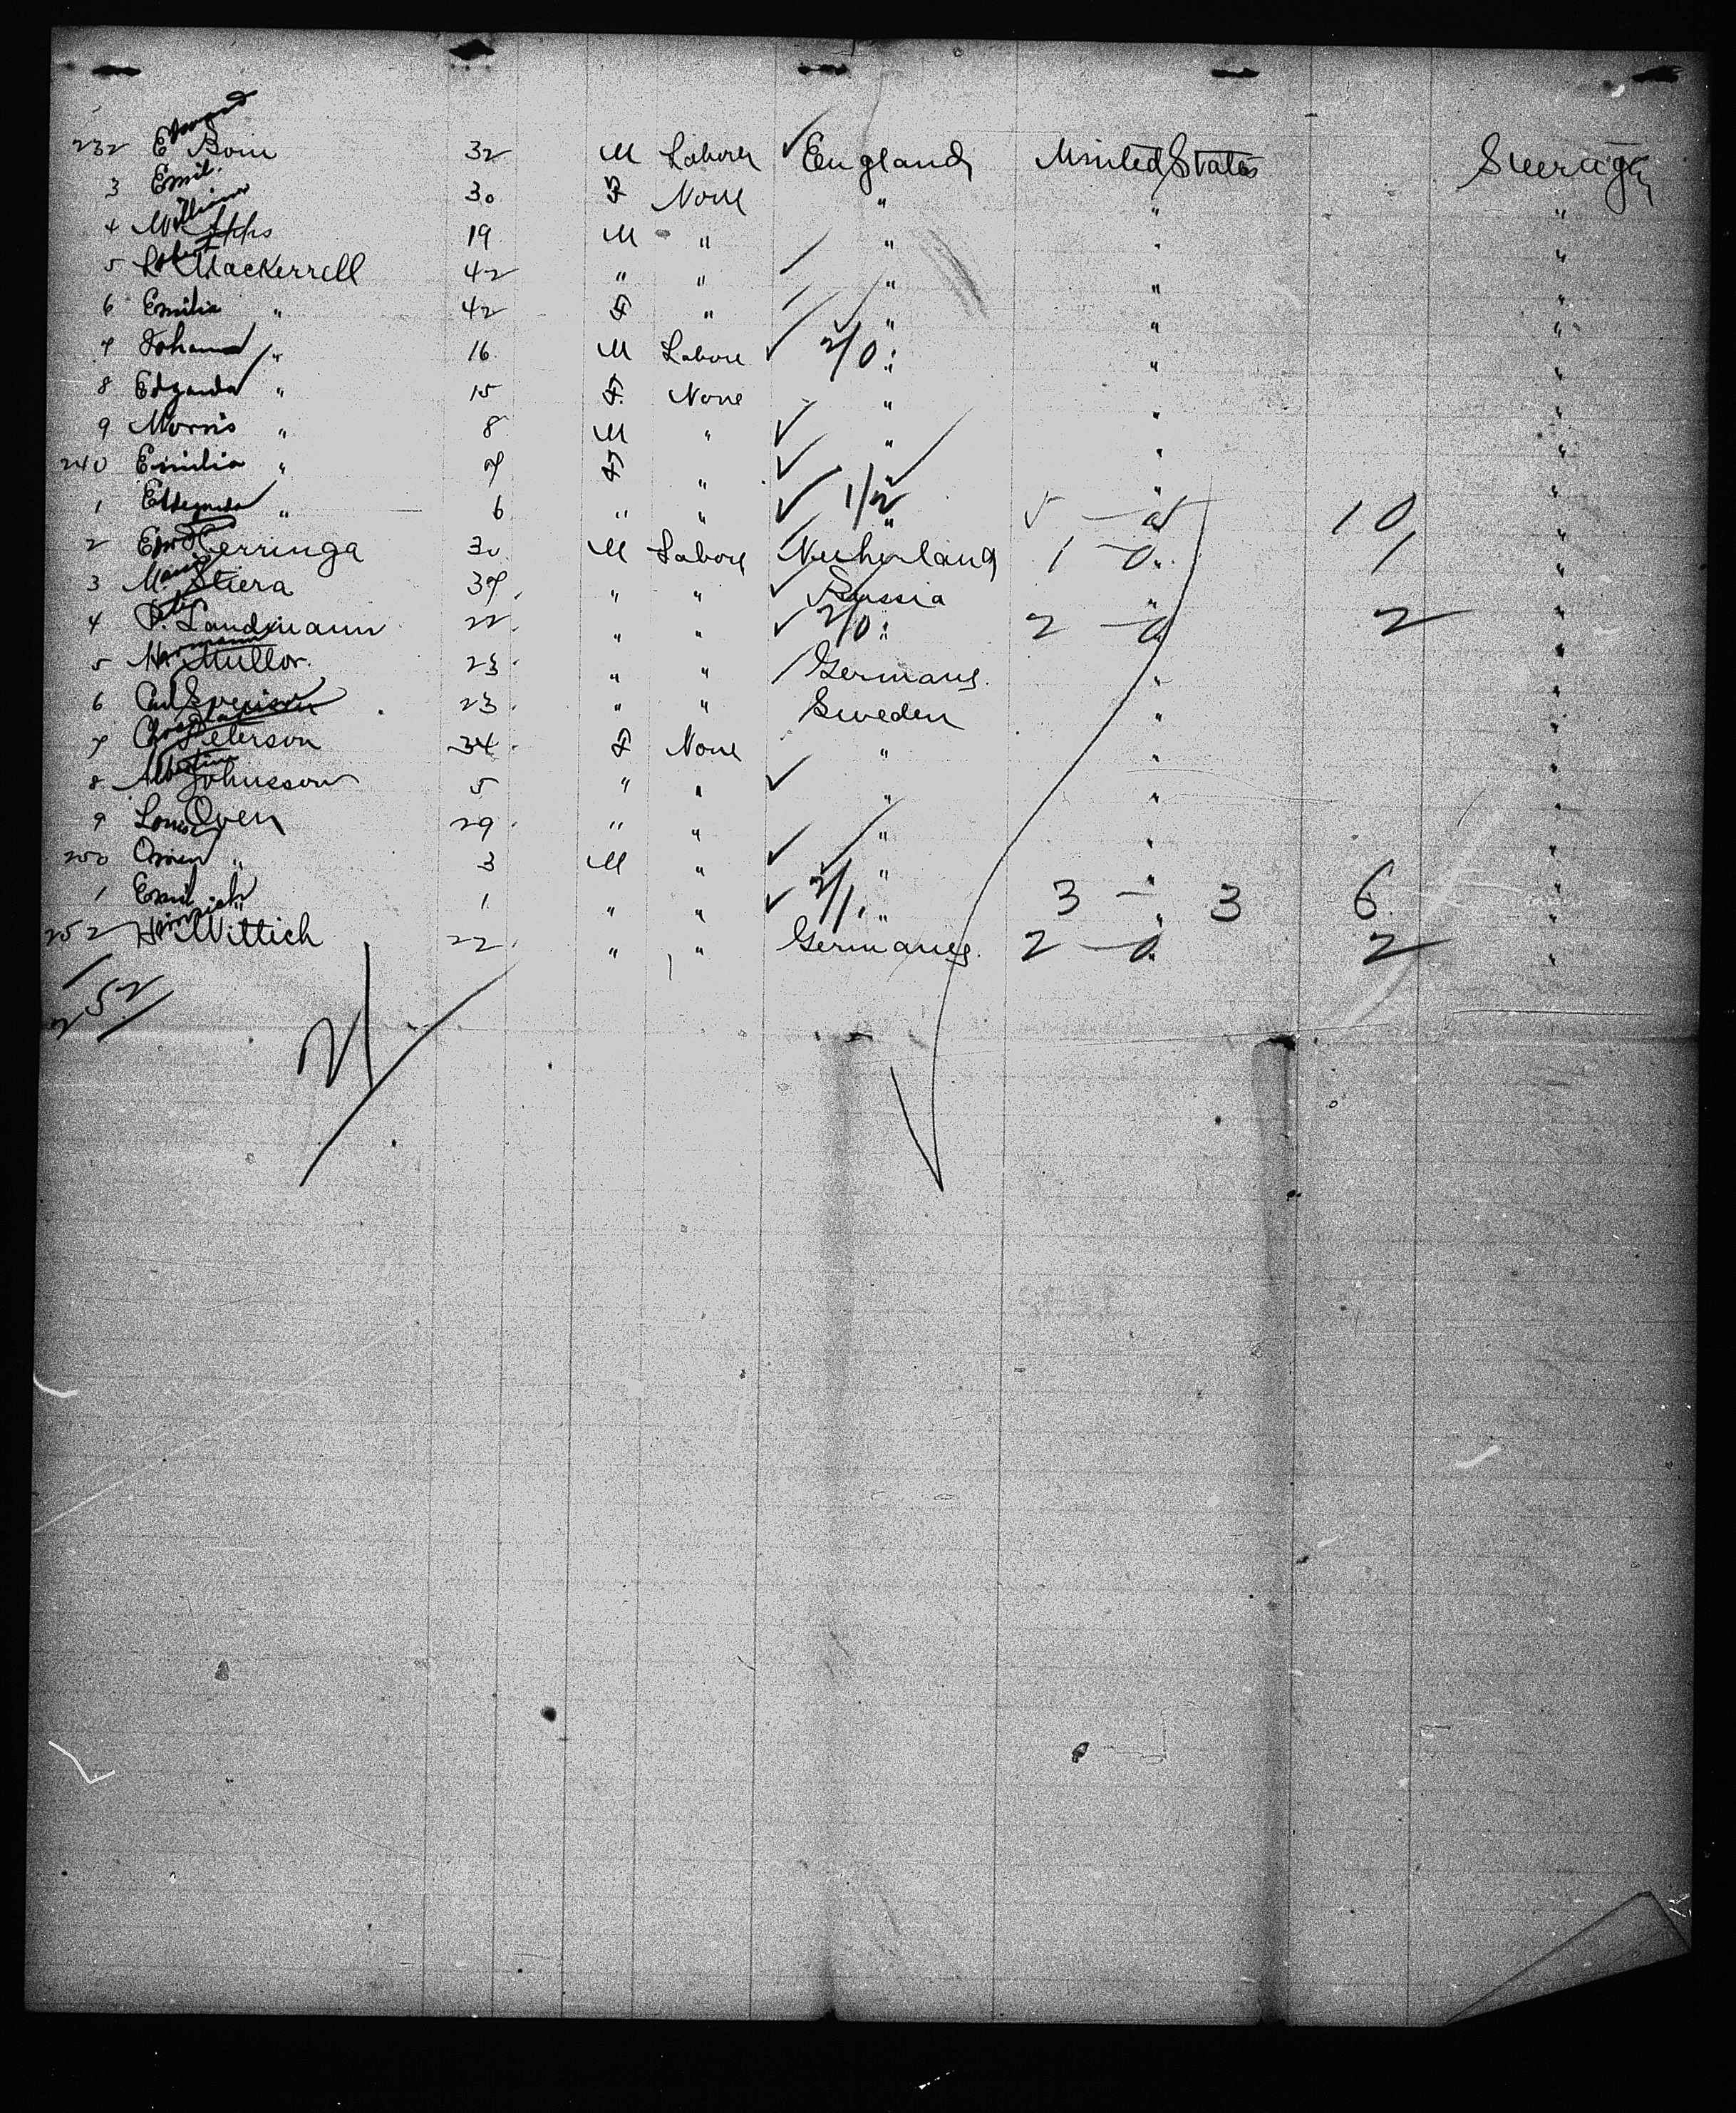 232 E Edward Bom 32 M Laborer England United States Steerage
3 Emil. 30 F None " " "
4 Wm William Apps 19 M " " " "
5 Robert Mackerrell 42 " " " " "
6 Emilia " 42 F " " " "
7 Johann " 16 M Labore 2/0 " " "
8 Edzarda " 15 F. None " " "
9 Morris " 8 M " " " "
240 Emilia " 7 F " " " "
1 " 6 " " 1/2 " 5 — 5 10 "
2 Herringa 30 M Labore Netherland 1 — 0 " 1 "
3 Stiera 37 " " Russia " "
4 P. Landmann 22 " " 2/0 " 2 — 0 2 "
5 Hermann Muller 23 " " Germany. " "
6 Carl Svenson 23 " " Sweden " "
7 Peterson 34 F None " " "
8 Albertina Johnsson 5 " " " " "
9 Louise Oven 29 " " " " "
250 " 3 M " " " "
1 Emil " 1 " " 2/1 " 3 — 3 6 "
252 Heinrich Wittich 22 " " Germany. 2 — 0 2 "
252
21